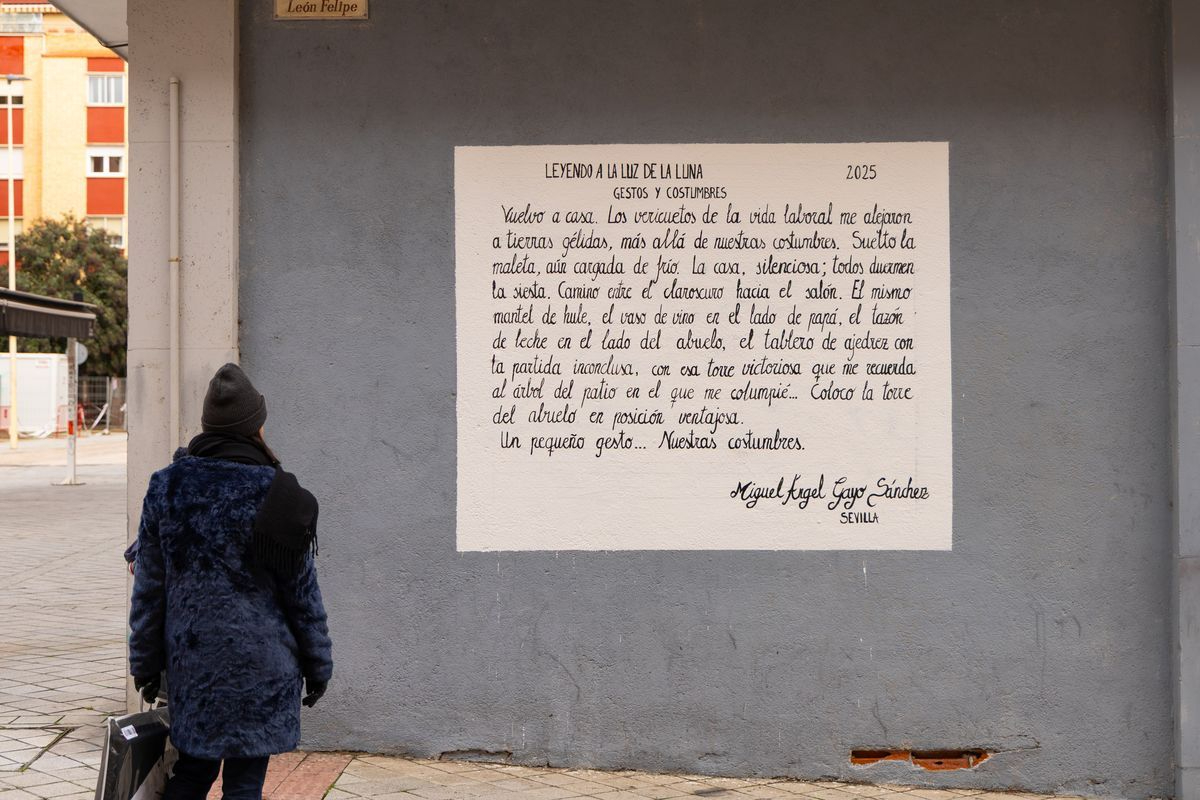 León Felipe
LEYENDO A LA LUZ DE LA LUNA 2025
GESTOS Y COSTUMBRES
Vuelvo a casa. Los vericuetos de la vida laboral me alejaron
a tierras gélidas, más allá de nuestras costumbres. Suelto la
maleta, aún cargada de frío. La casa, silenciosa; todos duermen
la siesta. Camino entre el claroscuro hacia el salón. El mismo
mantel de hule, el vaso de vino en el lado de papá, el tazón
de leche en el lado del abuelo, el tablero de ajedrez con
la partida inconclusa, con esa torre victoriosa que me recuerda
al árbol del patio en el que me columpié... Coloco la torre
del abuelo en posición ventajosa.
Un pequeño gesto... Nuestras costumbres.
Miguel Ángel Gayo Sánchez
SEVILLA